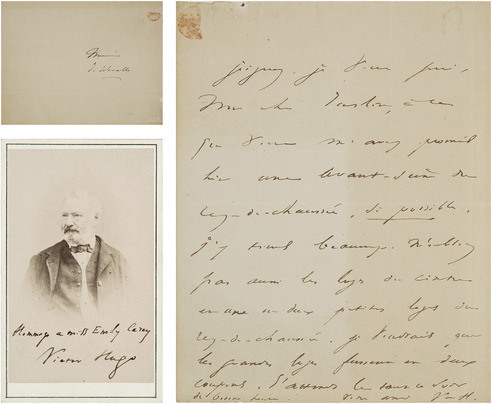 Monsieur
joignez. je vous prie,
Mon cher
que vous m'avez promis
hier une avant-scène du
rez-de-chaussée, si possible.
j'y tiens beaucoup. N'oubliez
pas aussi les loges du cintre
en une ou deux petites loges du
rez-de-chaussée. je voudrais que
les grandes loges fussent en deux
coupons. ce soir
votre ami V. H.
Hommage a miss Emily Carey
Victor Hugo